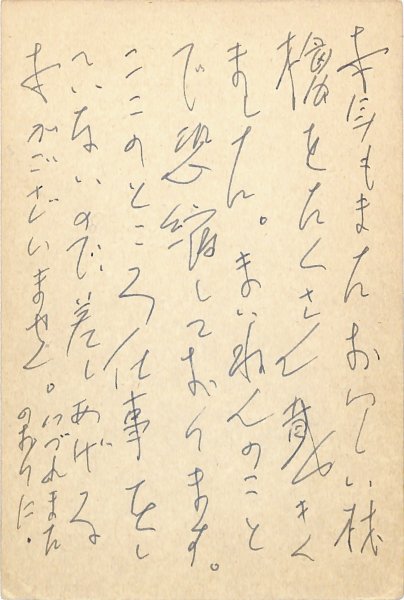 本年もまたおいしい林
檎をたくさん戴き
ました。まいねんのこと
で恐縮しております。
ここのところ仕事をし
ていないので差しあげる
本がございません。いづれまた
のおりに.